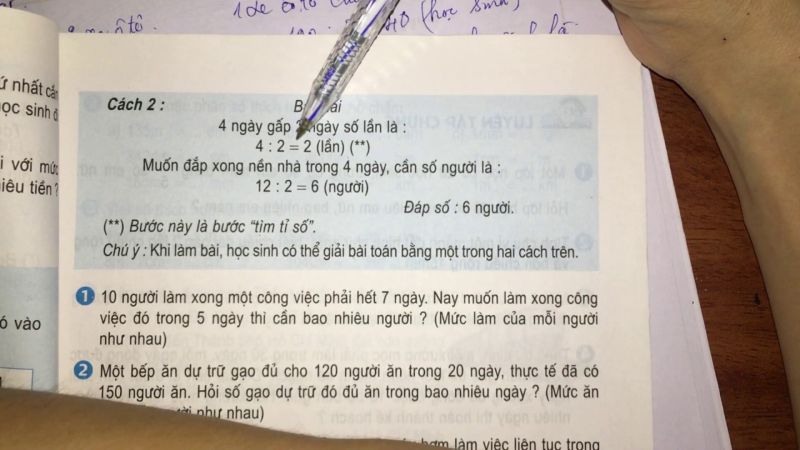 1 xe ô tô
(học sinh)
ứ nhất cần
ọc sinh đ
i với mức
iêu tiền ?
ó vào
Cách 2 :
4 ngày gấp 2 ngày số lần là :
4 : 2 = 2 (lần) (**)
Muốn đắp xong nền nhà trong 4 ngày, cần số người là :
12 : 2 = 6 (người)
Đáp số : 6 người.
(**) Bước này là bước “tìm tỉ số”.
Chú ý : Khi làm bài, học sinh có thể giải bài toán bằng một trong hai cách trên.
1 10 người làm xong một công việc phải hết 7 ngày. Nay muốn làm xong công
việc đó trong 5 ngày thì cần bao nhiêu người ? (Mức làm của mỗi người
như nhau)
2 Một bếp ăn dự trữ gạo đủ cho 120 người ăn trong 20 ngày, thực tế đã có
150 người ăn. Hỏi số gạo dự trữ đó đủ ăn trong bao nhiêu ngày ? (Mức ăn
như nhau)
làm việc liên tục trong